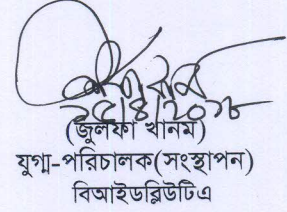 ২৫/৪/২০১৮
(জুলফা খানম)
যুগ্ম-পরিচালক(সংস্থাপন)
বিআইডব্লিউটিএ